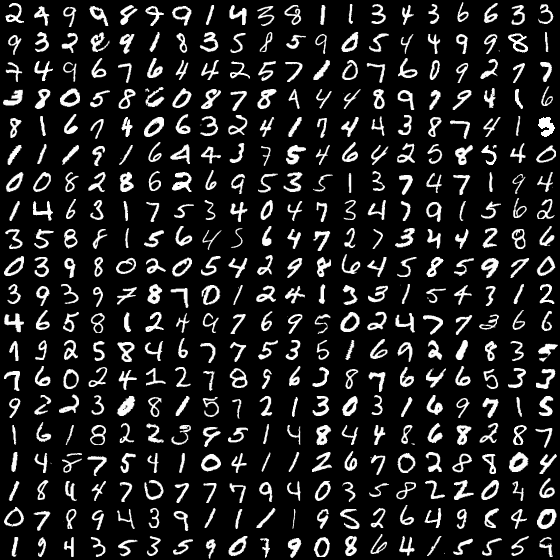 2 4 9 9 8 9 9 1 4 3 8 1 1 3 4 3 6 6 3 3
9 3 2 8 9 1 8 3 5 8 5 9 0 5 4 4 9 9 8 1
7 4 9 6 7 6 4 4 2 5 7 1 0 7 6 0 9 2 7 7
3 8 0 5 8 6 0 8 7 8 4 4 8 9 7 9 4 1 6
8 1 6 7 4 0 6 3 2 4 1 7 4 4 3 8 7 4 1
1 1 1 9 1 6 4 4 3 7 5 4 6 4 2 5 8 5 4 0
0 0 8 2 8 6 2 6 9 5 3 5 1 3 7 4 7 1 9 4
1 4 6 3 1 7 5 3 4 0 4 7 3 4 7 9 1 5 6 2
3 5 8 8 1 5 6 4 5 6 4 7 2 7 3 4 4 2 8 6
0 3 9 8 0 2 0 5 4 2 9 8 6 4 5 8 5 9 7 0
3 9 3 9 7 8 7 0 1 2 4 1 3 3 1 5 4 3 1 2
4 6 5 8 1 2 4 9 7 6 9 5 0 2 4 7 7 3 6 6
1 9 2 5 8 4 6 7 7 5 3 5 1 6 9 2 1 8 3 5
7 6 0 2 4 1 2 7 8 9 6 3 8 7 6 4 6 5 3 3
9 2 2 3 0 8 1 5 7 2 1 3 0 3 1 6 9 7 1 5
1 6 1 8 2 2 3 9 5 1 4 8 4 4 8 6 8 2 8 7
1 4 8 7 5 4 1 0 4 1 1 2 6 7 0 2 8 8 0 4
1 8 4 4 7 0 7 7 7 9 4 0 3 5 8 2 2 0 4 6
0 7 8 9 4 3 9 1 1 1 1 9 5 2 6 4 9 8 4 0
1 9 4 3 5 3 5 9 0 7 9 0 8 6 4 1 5 5 5 9